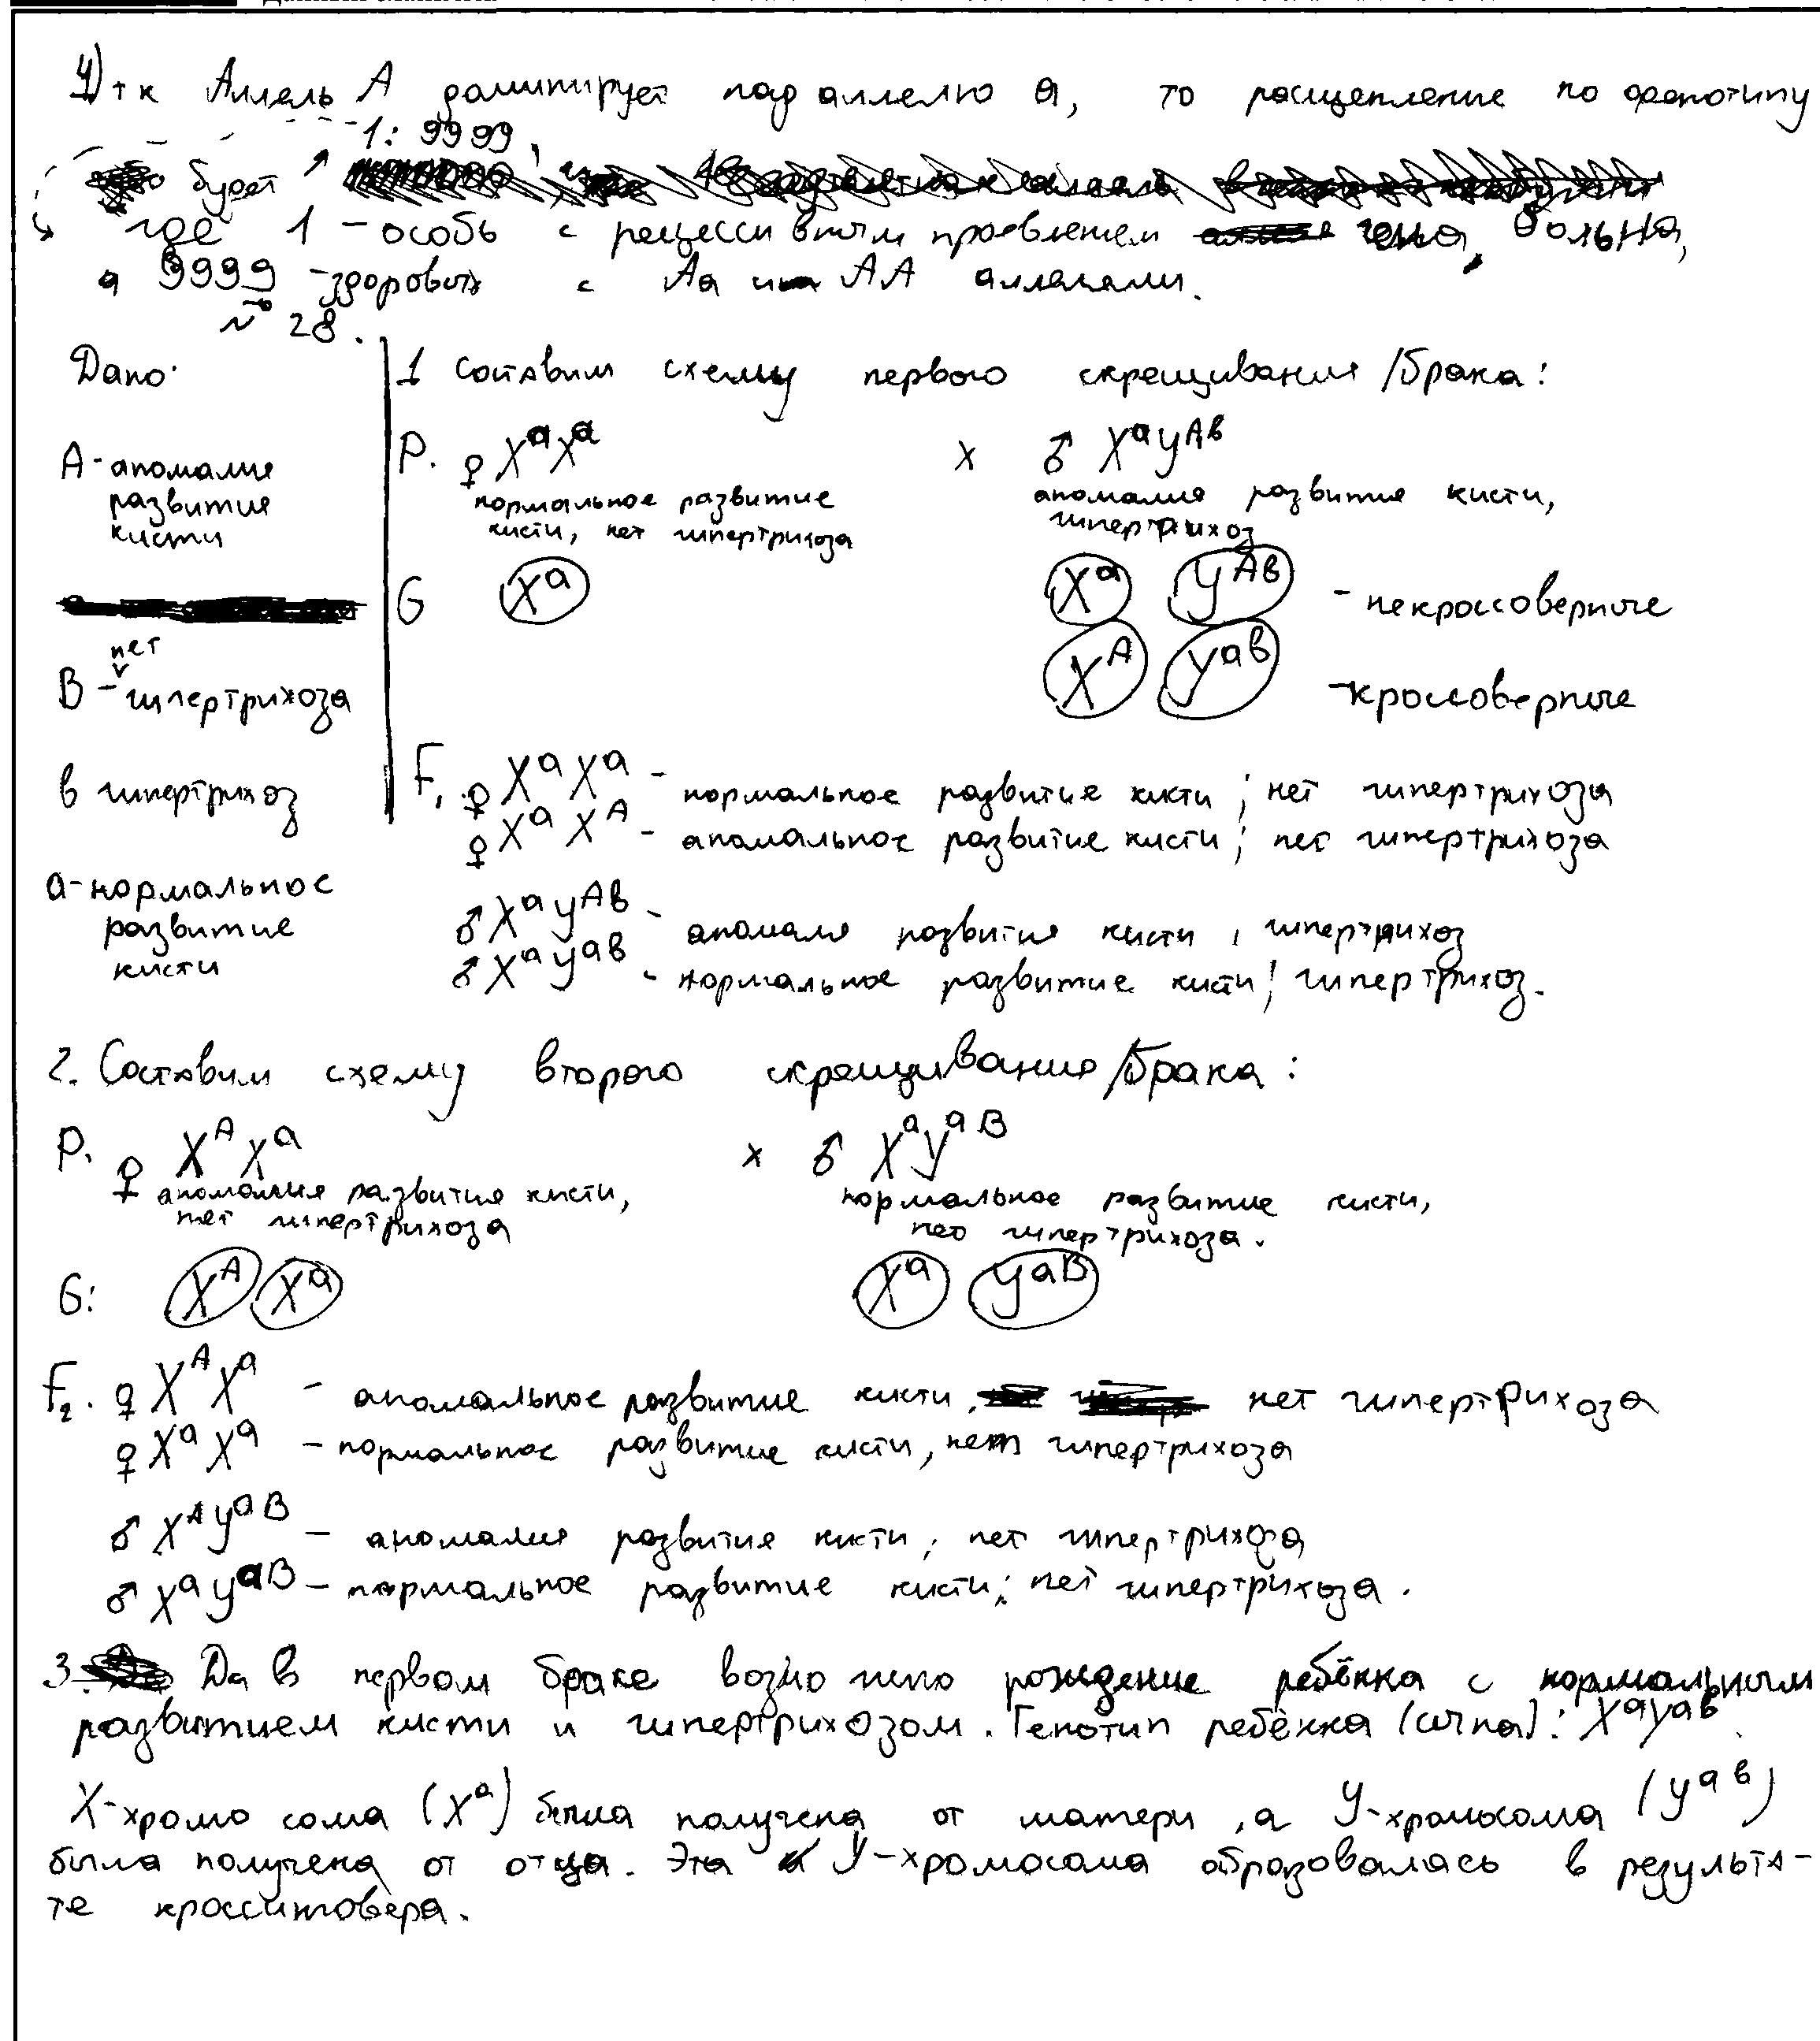 4) т к Аллель A доминирует над аллелю a, то расщепление по фенотипу
1:9999,
будет
где 1 - особь с рецессивным проявлением гена, больна,
а 9999 - здоровых с Aa или AA аллелями.
№ 28.
Дано:
A - аномалия
развития
кисти
нет
B - гипертрихоза
в гипертрихоз
a - нормальное
развитие
кисти
1 Составим схему первого скрещивания/брака:
P. ♀ XᵃXᵃ x ♂ XᵃYᴬᵇ
нормальное развитие аномалия развития кисти,
кисти, нет гипертрихоза гипертрихоз
G Xᵃ Xᵃ Yᴬᵇ - некроссоверные
Xᴬ Yᵃᵇ - кроссоверные
F₁ ♀ XᵃXᵃ - нормальное развитие кисти; нет гипертрихоза
♀ XᵃXᴬ - аномальное развитие кисти; нет гипертрихоза
♂ XᵃYᴬᵇ - аномалия развития кисти, гипертрихоз
♂ XᵃYᵃᵇ - нормальное развитие кисти; гипертрихоз.
2. Составим схему второго скрещивания/брака:
P. ♀ XᴬXᵃ x ♂ XᵃYᵃᴮ
аномалия развития кисти, нормальное развитие кисти,
нет гипертрихоза нет гипертрихоза.
G: Xᴬ Xᵃ Xᵃ Yᵃᴮ
F₂. ♀ XᴬXᵃ - аномальное развитие кисти, нет гипертрихоза
♀ XᵃXᵃ - нормальное развитие кисти, нет гипертрихоза
♂ XᴬYᵃᴮ - аномалия развития кисти; нет гипертрихоза
♂ XᵃYᵃᴮ - нормальное развитие кисти; нет гипертрихоза.
3. Да в первом браке возможно рождение ребёнка с нормальным
развитием кисти и гипертрихозом. Генотип ребёнка (сына): XᵃYᵃᵇ.
X-хромосома (Xᵃ) была получена от матери, а Y-хромосома (Yᵃᵇ)
была получена от отца. Эта Y-хромосома образовалась в результа-
те кроссинговера.